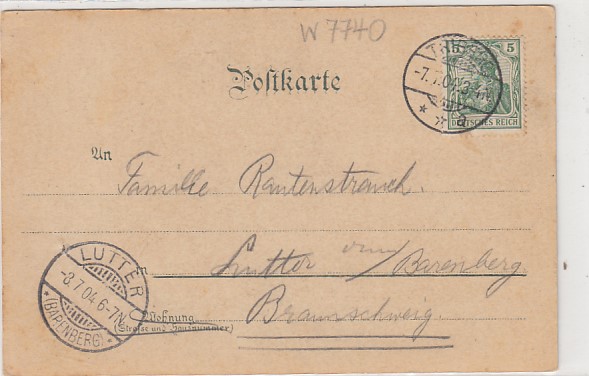 W 7740
Postkarte
5 5
DEUTSCHES REICH
-7.7.04.3-4N.
An
Familie Rautenstrauch.
in
Lutter am/Barenberg
Braunschweig.
Wohnung
(Straße und Hausnummer)
LUTTER
-8.7.04.6-7N.
* (BARENBERG) *